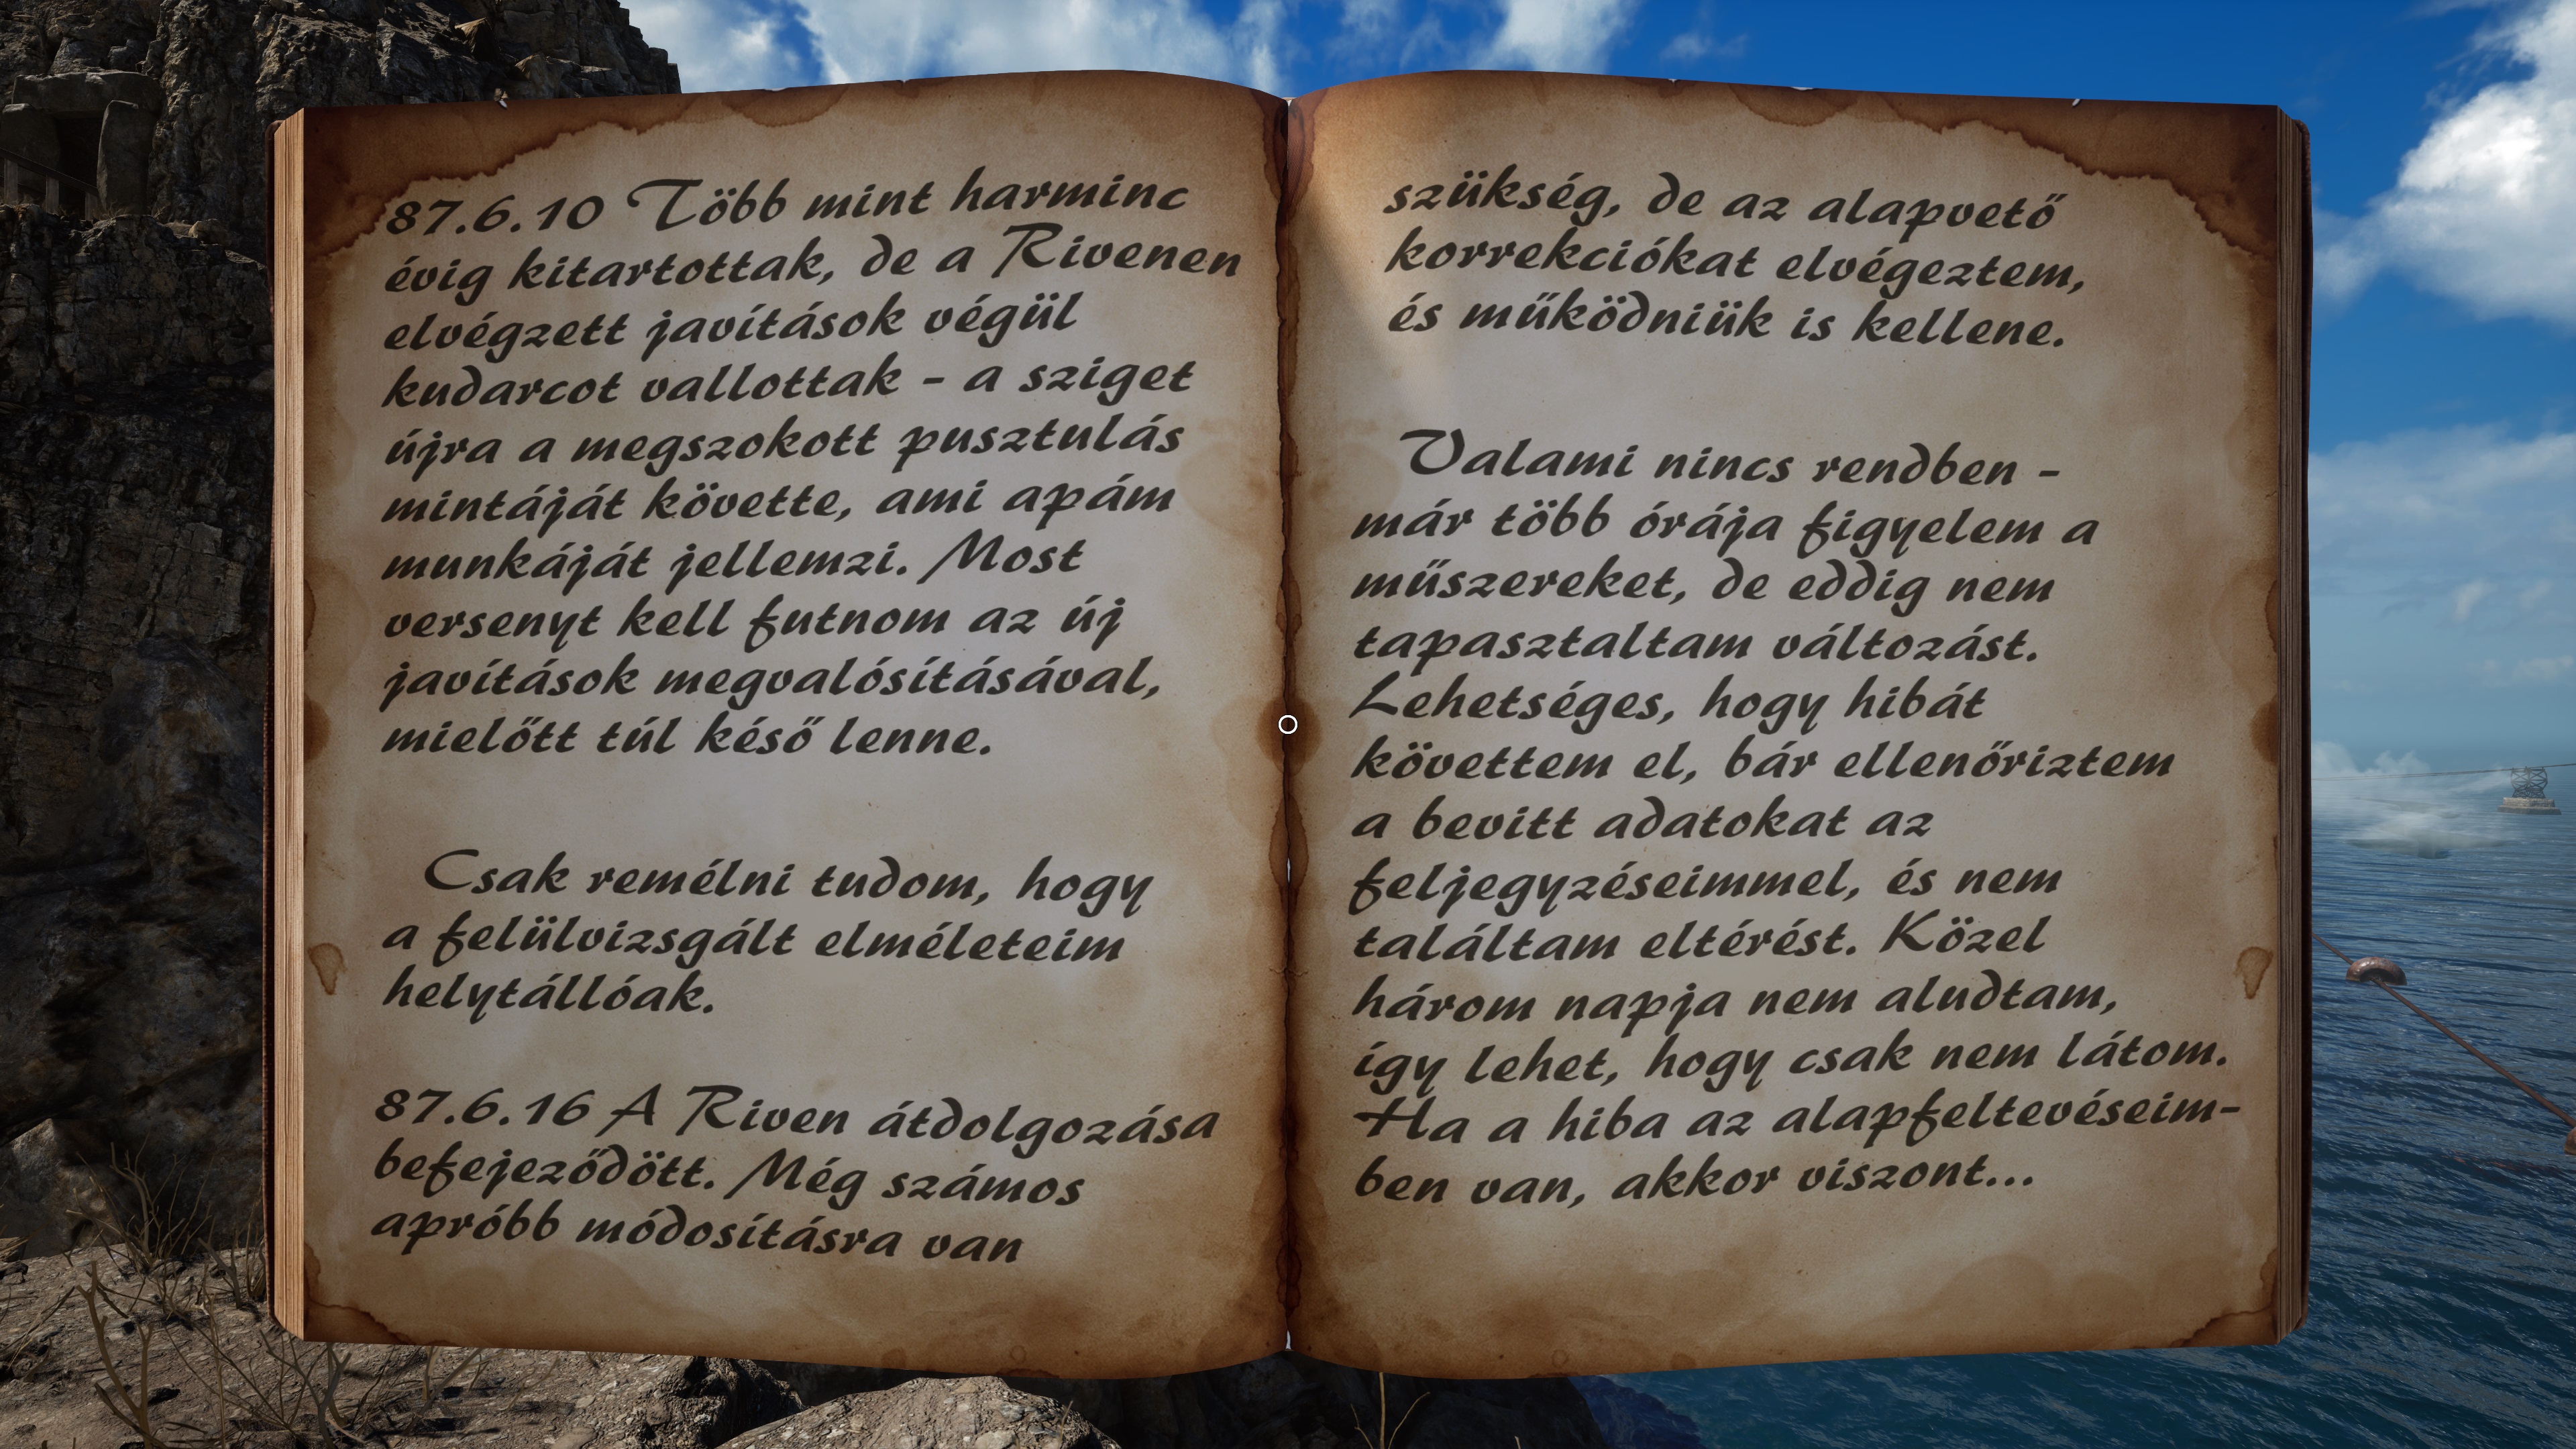 87.6.10 Több mint harminc
évig kitartottak, de a Rivenen
elvégzett javítások végül
kudarcot vallottak - a sziget
újra a megszokott pusztulás
mintáját követte, ami apám
munkáját jellemzi. Most
versenyt kell futnom az új
javítások megvalósításával,
mielőtt túl késő lenne.
Csak remélni tudom, hogy
a felülvizsgált elméleteim
helytállóak.
87.6.16 A Riven átdolgozása
befejeződött. Még számos
apróbb módosításra van
szükség, de az alapvető
korrekciókat elvégeztem,
és működniük is kellene.
Valami nincs rendben -
már több órája figyelem a
műszereket, de eddig nem
tapasztaltam változást.
Lehetséges, hogy hibát
követtem el, bár ellenőriztem
a bevitt adatokat az
feljegyzéseimmel, és nem
találtam eltérést. Közel
három napja nem aludtam,
így lehet, hogy csak nem látom.
Ha a hiba az alapfeltevéseim-
ben van, akkor viszont...